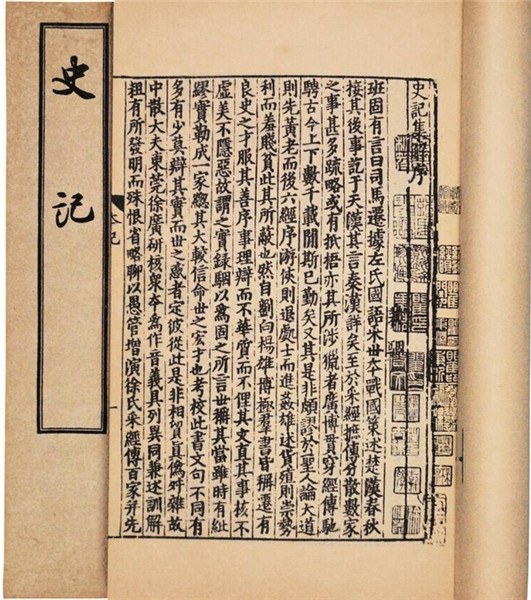 史記
史記集解序
班固有言曰司馬遷據左氏國語采世本戰國策述楚漢春秋
接其後事訖于天漢其言秦漢詳矣至於采經摭傳分散數家
之事甚多疏略或有抵捂亦其所涉獵者廣博貫穿經傳馳
騁古今上下數千載閒斯已勤矣又其是非頗謬於聖人論大道
則先黃老而後六經序游俠則退處士而進姦雄述貨殖則崇勢
利而羞賤貧此其所蔽也然自劉向楊雄博極羣書皆稱遷有
良史之才服其善序事理辯而不華質而不俚其文直其事核不
虛美不隱惡故謂之實錄駰以為固之所言世稱其當雖時有紕
繆實勒成一家緫其大較信命世之宏才也考校此書文句不同有
多有少莫辯其實而世之惑者定彼從此是非相貿真偽舛雜故
中散大夫東莞徐廣研核衆本為作音義具列異同兼述訓解
粗有所發明而殊恨省略聊以愚管增演徐氏采經傳百家并先